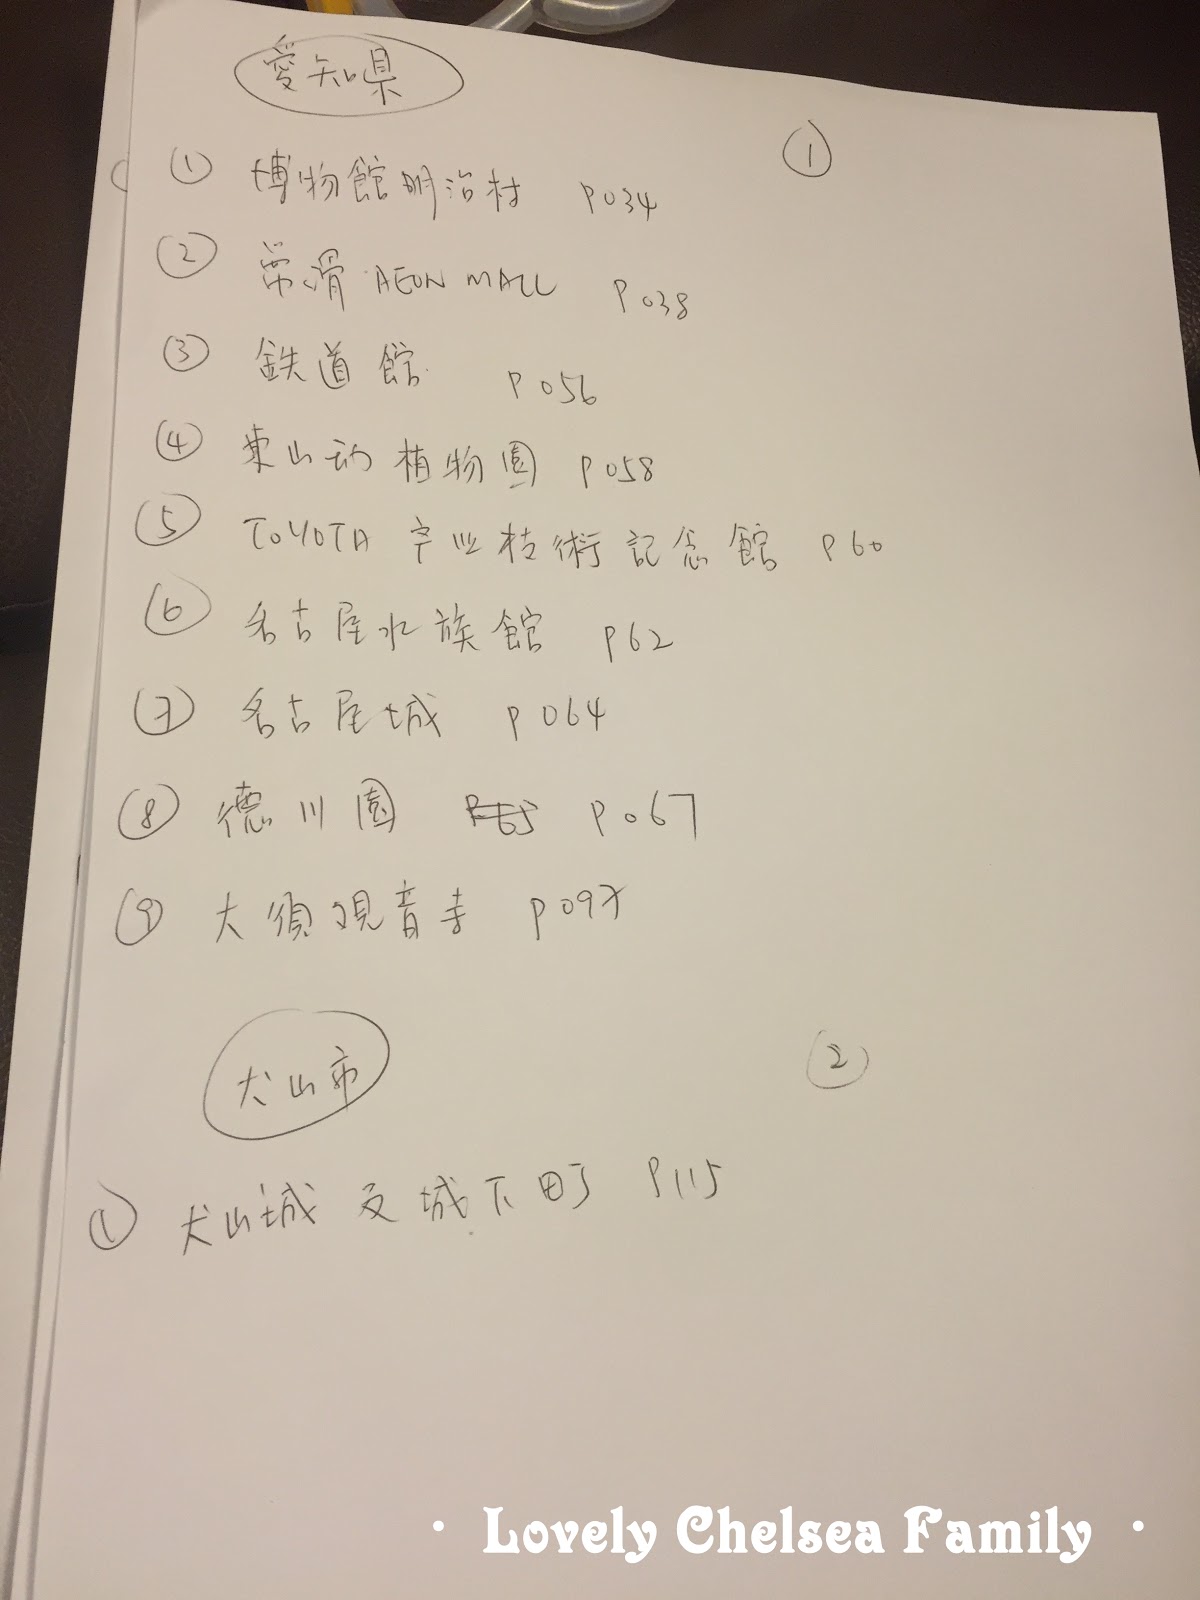 愛知県
①
① 博物館明治村 P034
② 常滑 AEON MALL P038
③ 鉄道館 P056
④ 東山动植物園 P058
⑤ TOYOTA 产业技術記念館 P60
⑥ 名古屋水族館 P62
⑦ 名古屋城 P064
⑧ 德川園 P067
⑨ 大須観音寺 P097
犬山市
②
① 犬山城 及 城下町 P115
· Lovely Chelsea Family ·